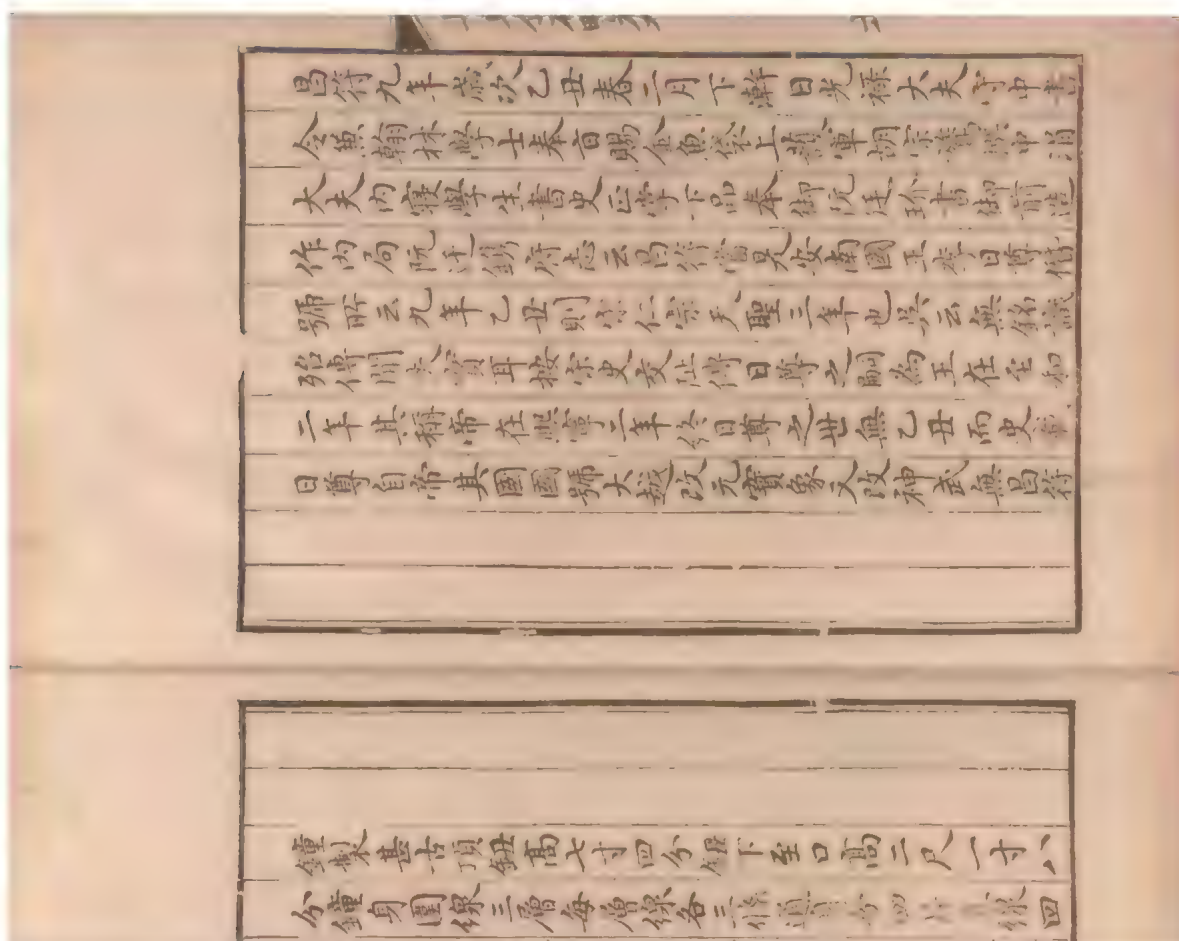 昌符九年歲次乙丑春二月下澣日光祿大夫守中書
令兼翰林學士奉旨賜金魚袋上護軍胡宗鷟撰中涓
大夫內寢學生書史正掌下品奉御阮廷玠書御前造
作內局阮汗鐫府志云昌符當是安南國王李日尊僭
號所云九年乙丑則宋仁宗天聖三年也吳云無銘識
殆傳聞失實耳按宋史交阯傳日尊之嗣為王在至和
二年其稱帝在熙寧二年終日尊之世無乙丑而史載
日尊自帝其國國號大越改元寶象又改神武無昌符
鐘製甚古頂鈕高七寸四分鈕下至口高二尺一寸八
分鐘身圍線三層每層線各三條線四